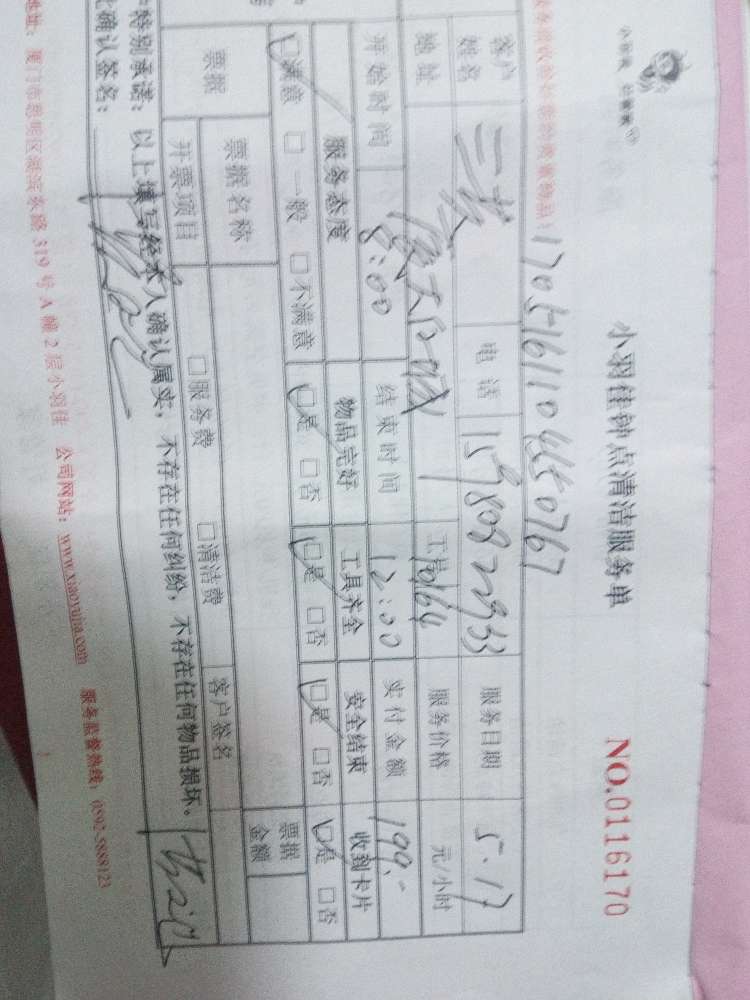 小羽佳钟点清洁服务单
NO.0116170
170516110450767
客户姓名 电话 15980822953 服务日期 5.17
地址 厦大白城 工号 1064 服务价格 元/小时
开始时间 8:00 结束时间 12:00 实付金额 199.-
服务态度 物品完好 工具齐全 安全结束 收到卡片
☑满意 □一般 □不满意 ☑是 □否 ☑是 □否 ☑是 □否 ☑是 □否
票据 票据名称 票据金额
开票项目 □服务费 □清洁费 客户签名
特别承诺：以上填写经本人确认属实，不存在任何纠纷，不存在任何物品损坏。
确认签名：
地址：厦门市思明区湖滨东路 319 号 A 幢 2 层小羽佳 公司网站：www.xiaoyujia.com 服务监督热线：0592-5888123